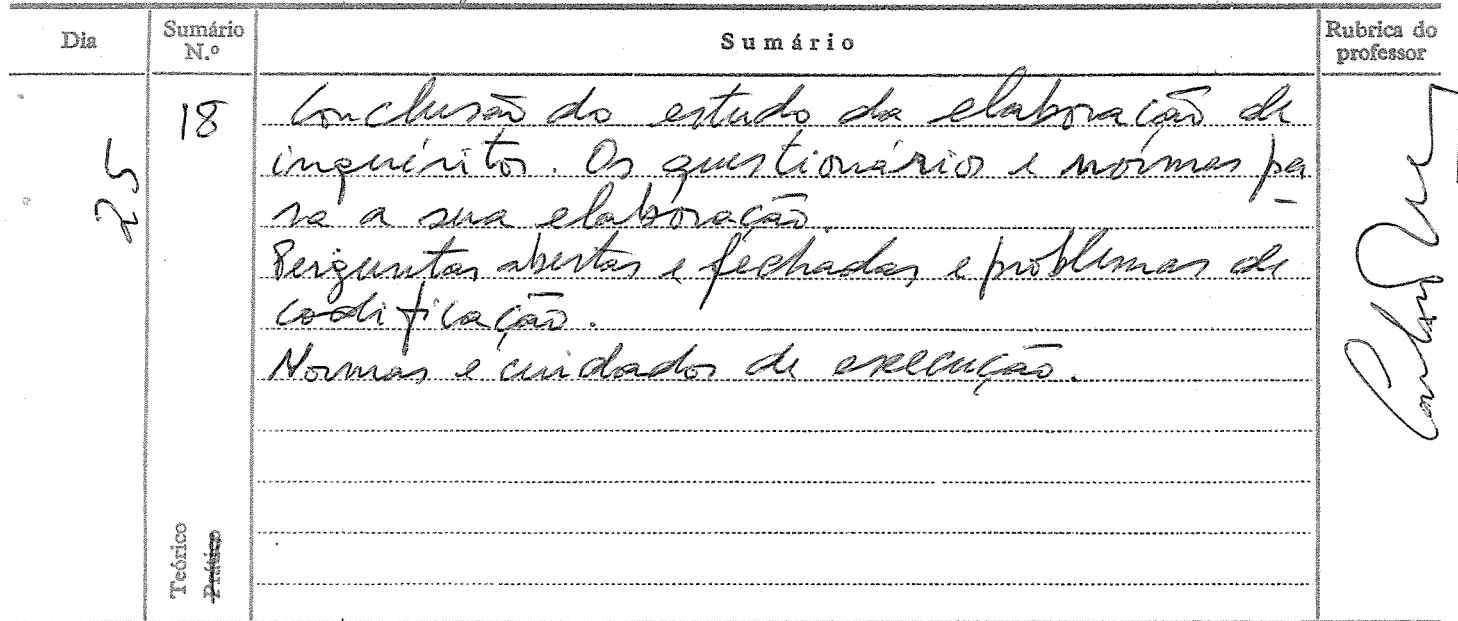 Dia
Sumário N.º
Sumário
Rubrica do professor
25
18
Conclusão do estudo da elaboração de
inquéritos. Os questionários e normas pa
ra a sua elaboração.
Perguntas abertas e fechadas e problemas de
codificação.
Normas e cuidados de execução.
Teórico
Prático